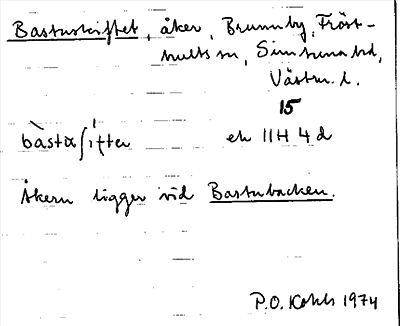 Bastuskiftet, åker, Brunnby, Fröst-
hults sn, Simtuna hd,
Västm. l.
15
bàstaʃíften
ek 11H 4d
Åkern ligger vid Bastubacken.
P.O. Kohls 1974